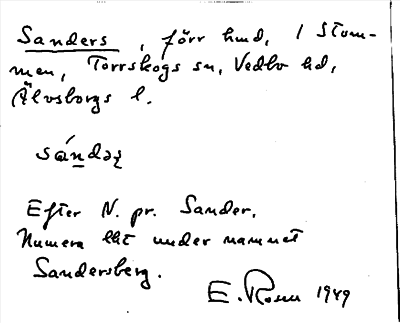 Sanders, förr hmd, i Stom-
men, Torrskogs sn, Vedbo hd,
Älvsborgs l.
sándəʂ
Efter N. pr. Sander.
Numera lht under namnet
Sandersberg.
E. Rosell 1949